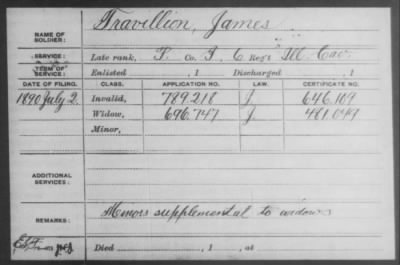 NAME OF SOLDIER: Travillion, James
SERVICE: Late rank, P. Co. I, 6 Reg't Ill Cav.
TERM OF SERVICE: Enlisted , 1 Discharged , 1
DATE OF FILING. CLASS. APPLICATION NO. LAW. CERTIFICATE NO.
1890 July 2. Invalid, 789.218 J. 646.109
Widow, 696.747 J. 481.049
Minor,
ADDITIONAL SERVICES:
REMARKS: Minors supplemental to widows
Died , 1 , at